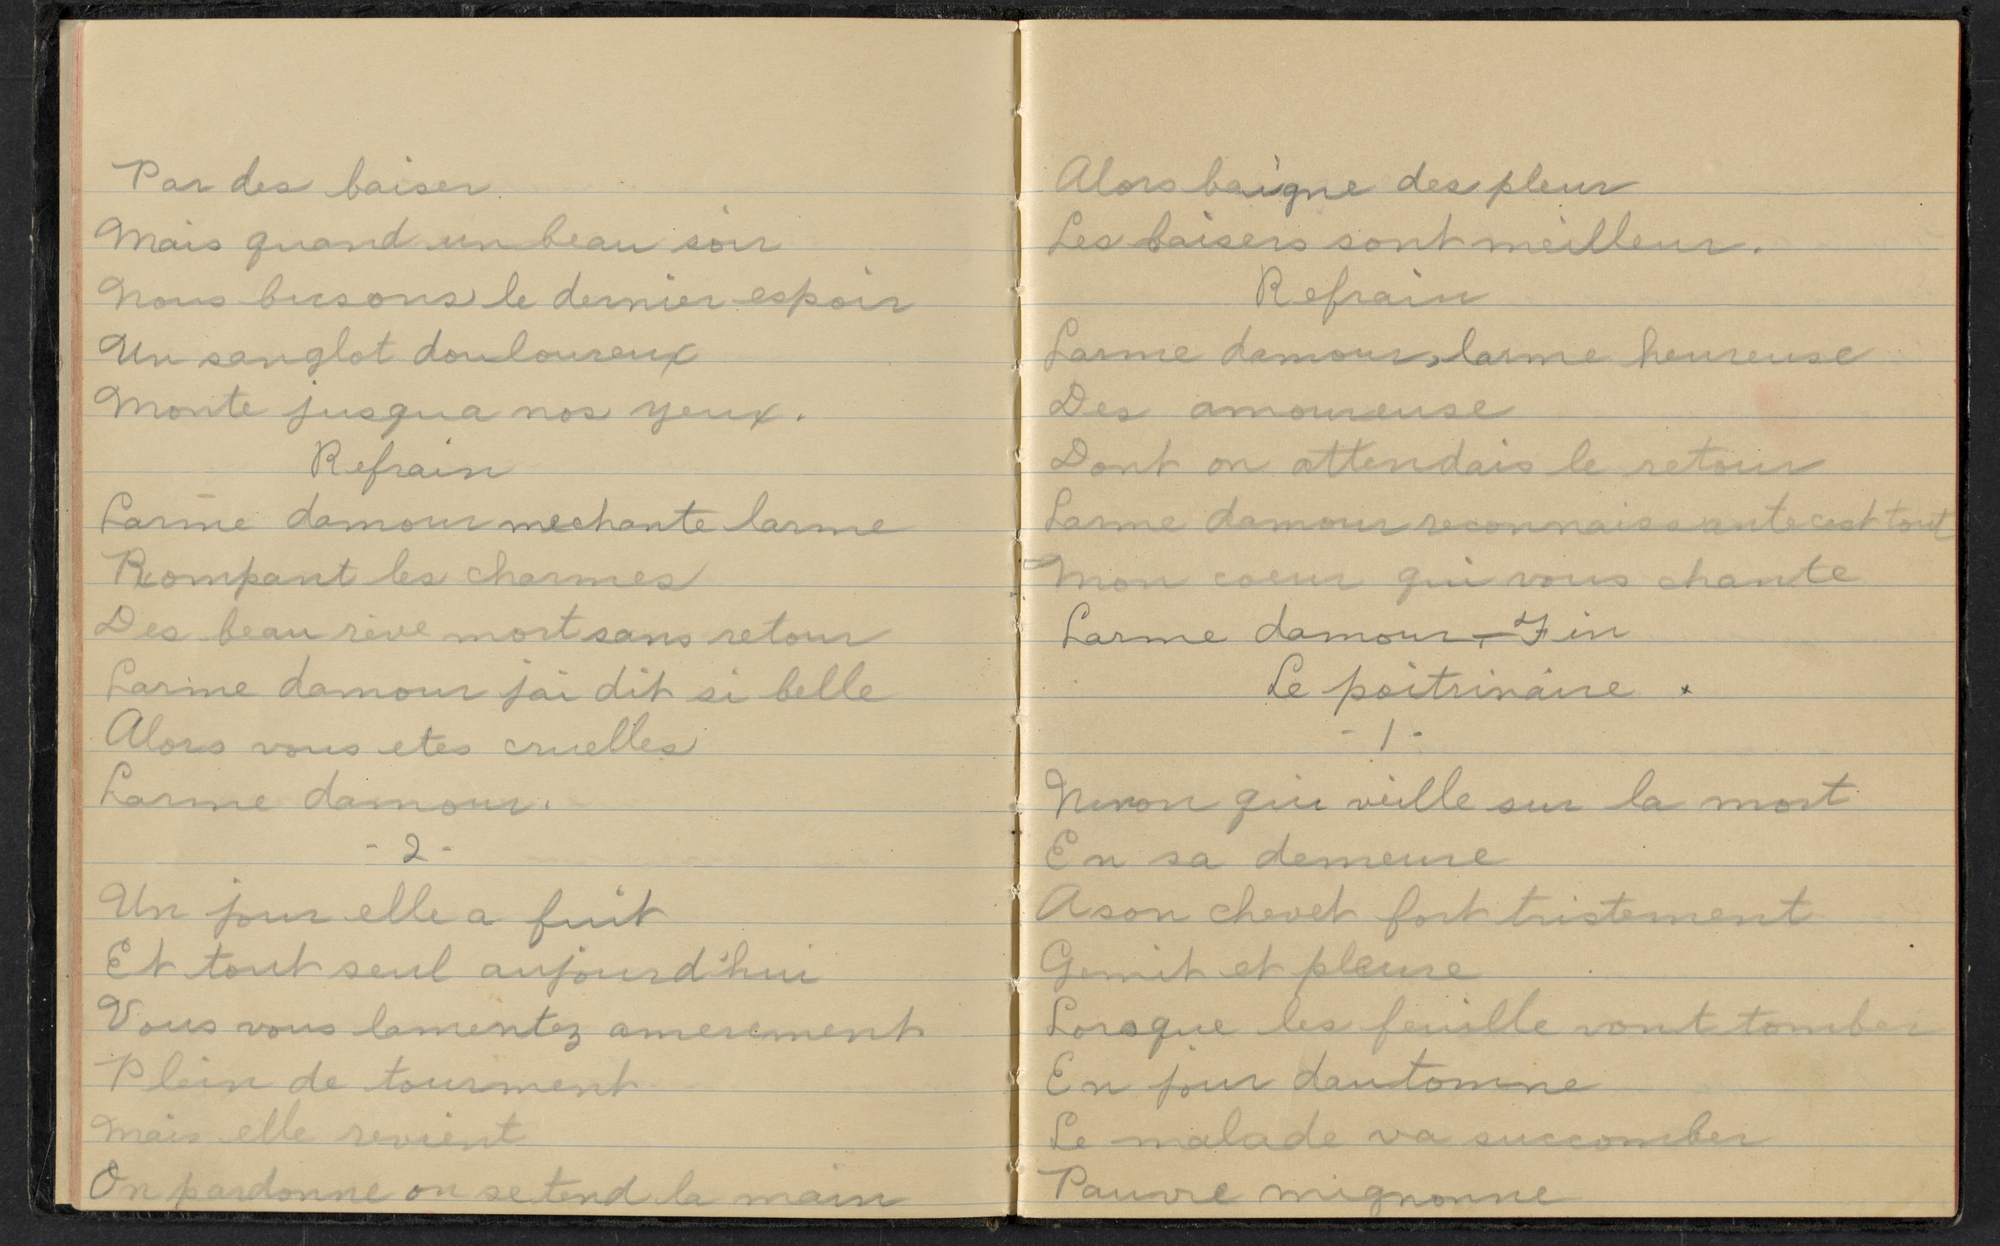 Par des baiser
Mais quand un beau soir
Nous brisons le dernier espoir
Un sanglot douloureux
Monte jusqua nos yeux.
Refrain
Larme damour mechante larme
Rompant les charmes
Des beau rêve mort sans retour
Larme damour jai dit si belle
Alors vous etes cruelles
Larme damour.
- 2 -
Un jour elle a fuit
Et tout seul aujourd'hui
Vous vous lamentez amerement
Plein de tourment
Mais elle revient
On pardonne on se tend la main
Alors baigne des pleur
Les baisers sont meilleur.
Refrain
Larme damour, larme heureuse
Des amoureuse
Dont on attendais le retour
Larme damour reconnaissante cest tout
Mon coeur qui vous chante
Larme damour - Fin
Le poitrinaire .
- 1 -
Ninon qui veille sur la mort
En sa demeure
A son chevet fort tristement
Gemit et pleure
Lorsque les feuille vont tomber
En jour dautomne
Le malade va succomber
Pauvre mignonne